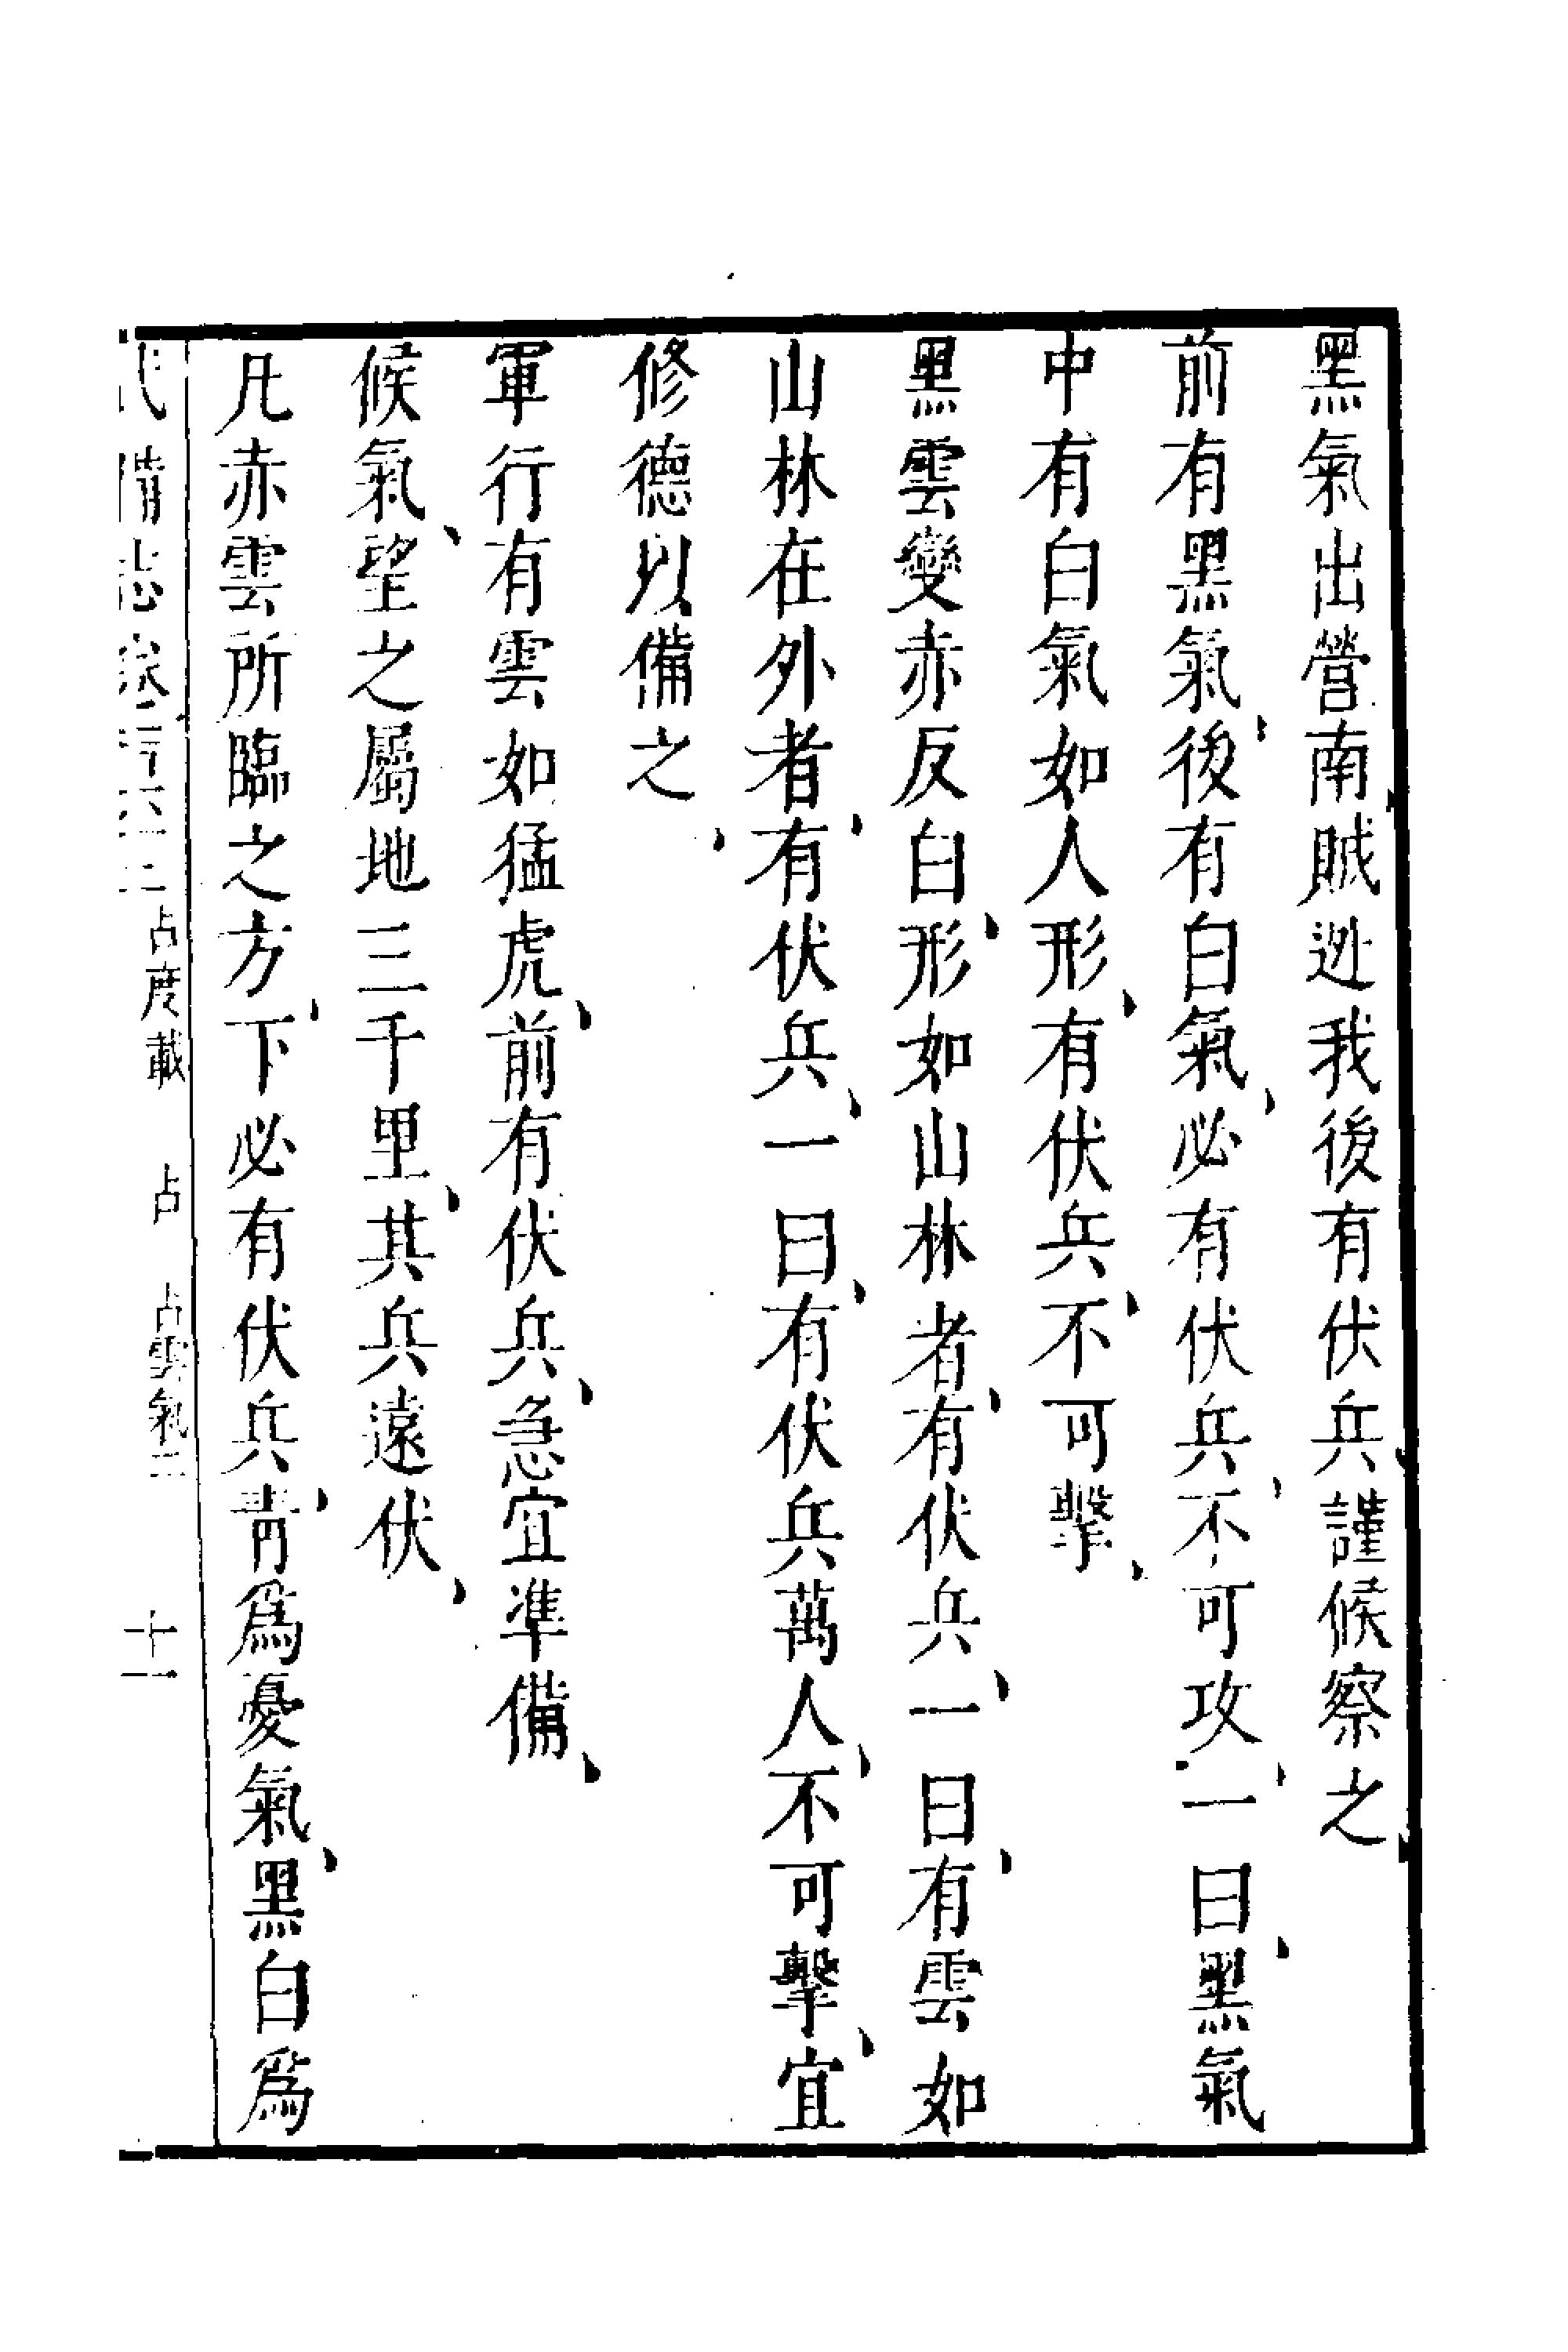 黑氣出營南賊逃我後有伏兵謹候察之
前有黑氣後有白氣必有伏兵不可攻一曰黑氣
中有白氣如人形有伏兵不可擊
黑雲變赤反白形如山林者有伏兵一曰有雲如
山林在外者有伏兵一曰有伏兵萬人不可擊宜
修德以備之
軍行有雲如猛虎前有伏兵急宜凖備
候氣望之屬地三千里其兵遠伏
凡赤雲所臨之方下必有伏兵靑爲憂氣黑白爲
武備志卷一百六十二 占度載 占 占雲氣二 十一